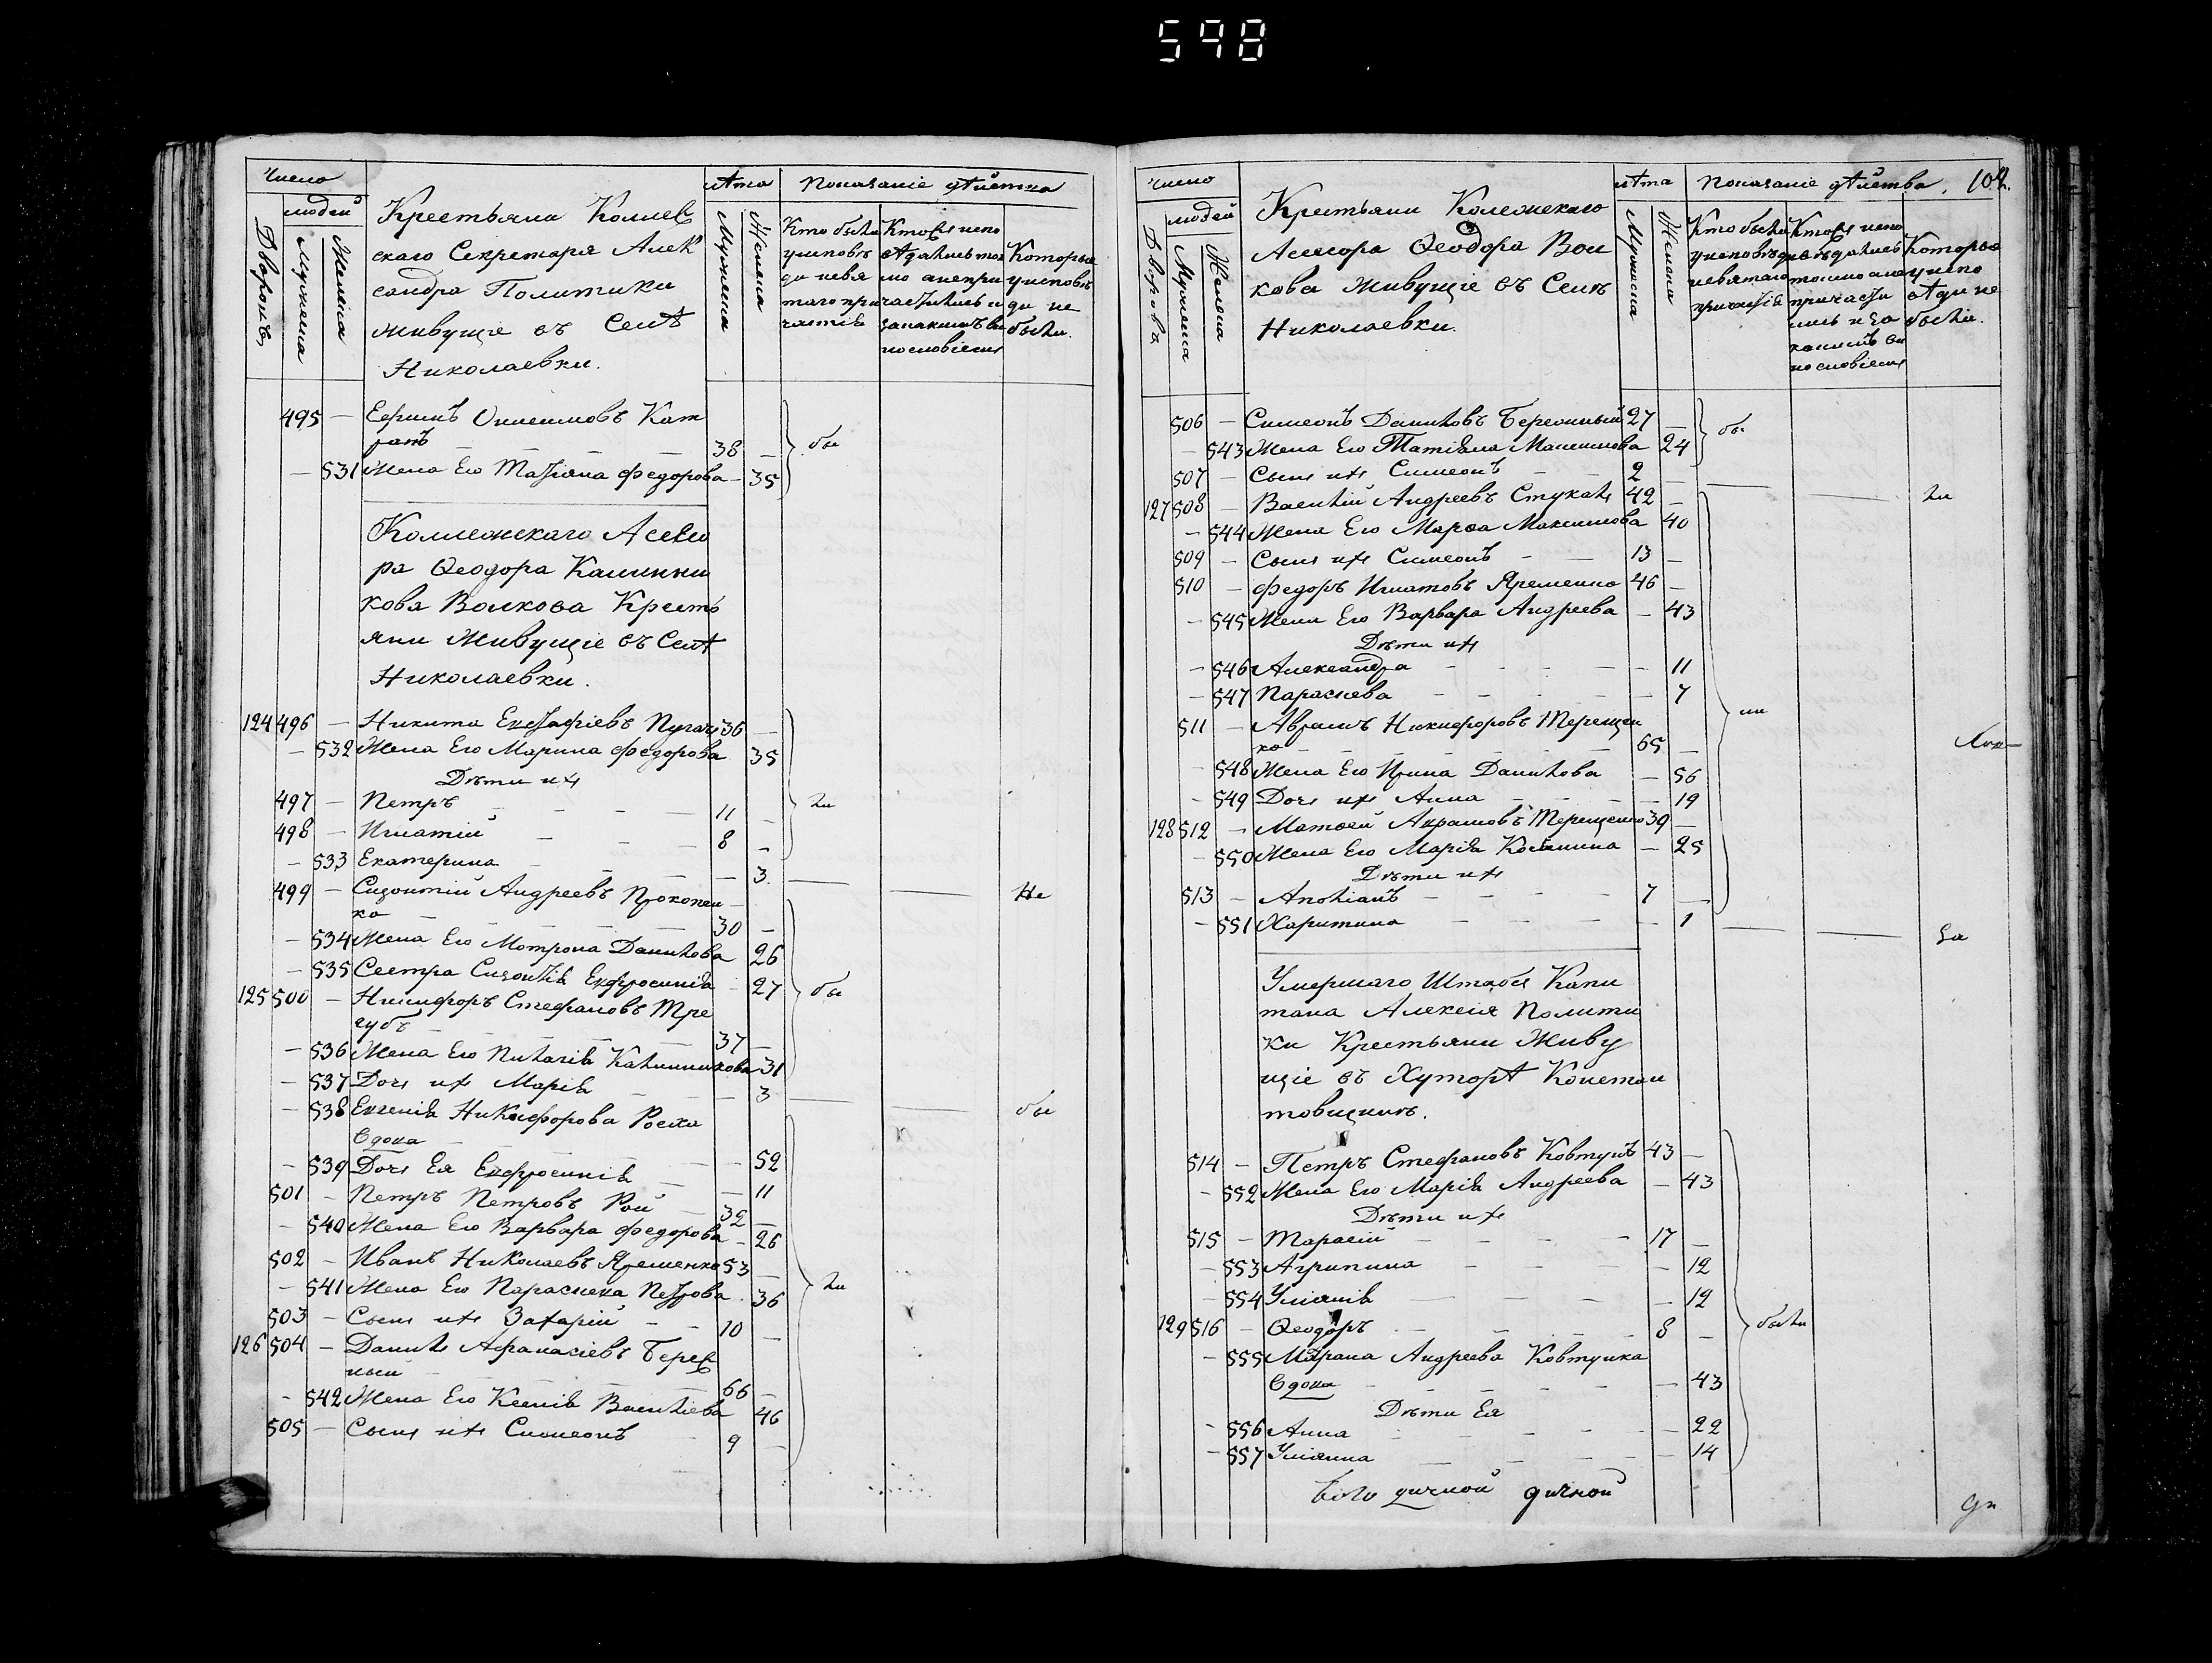 598
Число
людей
Дворовъ
Мужеска
Женска
Крестьяни Коллеж
скаго Секретаря Алек
сандра Политики
живущіе въ Селѣ
Николаевки.
лѣта
Мужеска
Женска
Показаніе дѣйства
Кто были
у исповѣ
ди и свя
таго при
частія
Которыя
у исповѣ
ди не
были.
495 — Ефримъ Онисимовъ Кат
ранъ — — — 38 —
— 531 Жена Его Татіяна Федорова — 35
бы
Коллежскаго Асесо
ра Ѳеодора Калинни
кова Волкова Кресть
яни Живущіе въ Селѣ
Николаевки.
124 496 — Никита Евстафіевъ Пугачъ 36 —
— 532 Жена Его Марина Федорова 35
Дѣти ихъ
497 — Петръ — — — 11 —
498 — Игнатій — — — 8 —
— 533 Екатерина — — — 3
ли
499 — Сизонтій Андреевъ Прокопен
ко — — — 30 —
Не
— 534 Жена Его Мотрона Данилова 26
— 535 Сестра Сизонтія Евфросинія — 27
125 500 — Никифоръ Стефановъ Тре
губъ — — — 37 —
бы
— 536 Жена Его Пилагія Калинникова 31
— 537 Дочь ихъ Марія — — 3
— 538 Евгенія Никифорова Роска
бы
Вдова — — — 52
— 539 Дочь Ея Евфросинія — — 11
501 — Петръ Петровъ Рой — 32 —
— 540 Жена Его Варвара Федорова — 26
502 — Иванъ Николаевъ Яременко 53 —
— 541 Жена Его Параскева Петрова 36
ли
503 — Сынъ ихъ Захарій — — 10 —
126 504 — Данило Афанасіевъ Береж
ный — — — 66 —
— 542 Жена Его Ксенія Василіева 46
505 — Сынъ ихъ Симеонъ — 9 —
Число
людей
Дворовъ
Мужеска
Женска
Крестьяни Колежскаго
Асесора Ѳеодора Вол
кова живущіе въ Селѣ
Николаевки.
лѣта
Мужеска
Женска
Показаніе дѣйства. 104.
Кто были
Которые
у испо
вѣди не
были.
506 — Симеонъ Даниловъ Бережный 27 —
— 543 Жена Его Татіяна Максимова 24
бы
507 — Сынъ ихъ Симеонъ — — 2 —
ли
127 508 — Василій Андреевъ Стукалъ 42 —
— 544 Жена Его Марѳа Максимова 40
509 — Сынъ ихъ Симеонъ — — 13 —
510 — Федоръ Игнатовъ Яременко 46 —
— 545 Жена Его Варвара Андреева — 43
Дѣти ихъ
— 546 Александра — — — 11
— 547 Параскева — — — 7
511 — Аврамъ Никифоровъ Терещен
ко — — — 65 —
— 548 Жена Его Ирина Данилова — 56
— 549 Дочь ихъ Анна — — — 19
128 512 — Матвей Аврамовъ Терещенко 39 —
— 550 Жена Его Марія Косьмина — 25
Дѣти ихъ
513 — Аполіанъ — — — 7 —
— 551 Харитина — — — 1
За
Умершаго Штабсъ Капи
тана Алексія Полити
ки Крестьяни Живу
щіе въ Хуторѣ Констан
товщинѣ.
514 — Петръ Стефановъ Ковтунъ 43 —
— 552 Жена Его Марія Андреева — 43
Дѣти ихъ
515 — Тарасій — — — 17 —
— 553 Агрипина — — — 12
— 554 Уліянія — — — 12
129 516 — Ѳеодоръ — — — 8 —
были
— 555 Марана Андреева Ковтунка
Вдова — — — 43
Дѣти Ея
— 556 Анна — — — 22
— 557 Уліянна — — — 14